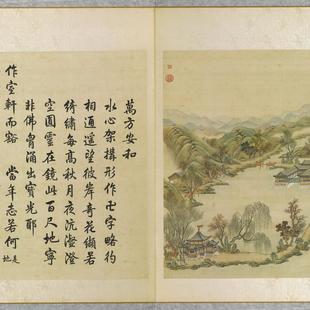 萬方安和
水心架搆形作卍字略彴
相通遥望彼岸奇花纈若
綺繡每高秋月夜沆瀣澄
空圓靈在鏡此百尺地寧
非佛胷涌出寶光耶
作室軒而豁 當年志若何 是地